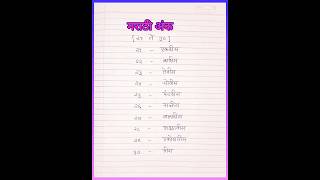 मराठी अंक
[ २१ ते ३० ]
२१ - एकवीस
२२ - बावीस
२३ - तेवीस
२४ - चोवीस
२५ - पंचवीस
२६ - सव्वीस
२७ - सत्तावीस
२८ - अठ्ठावीस
२९ - एकोणतीस
३० - तीस